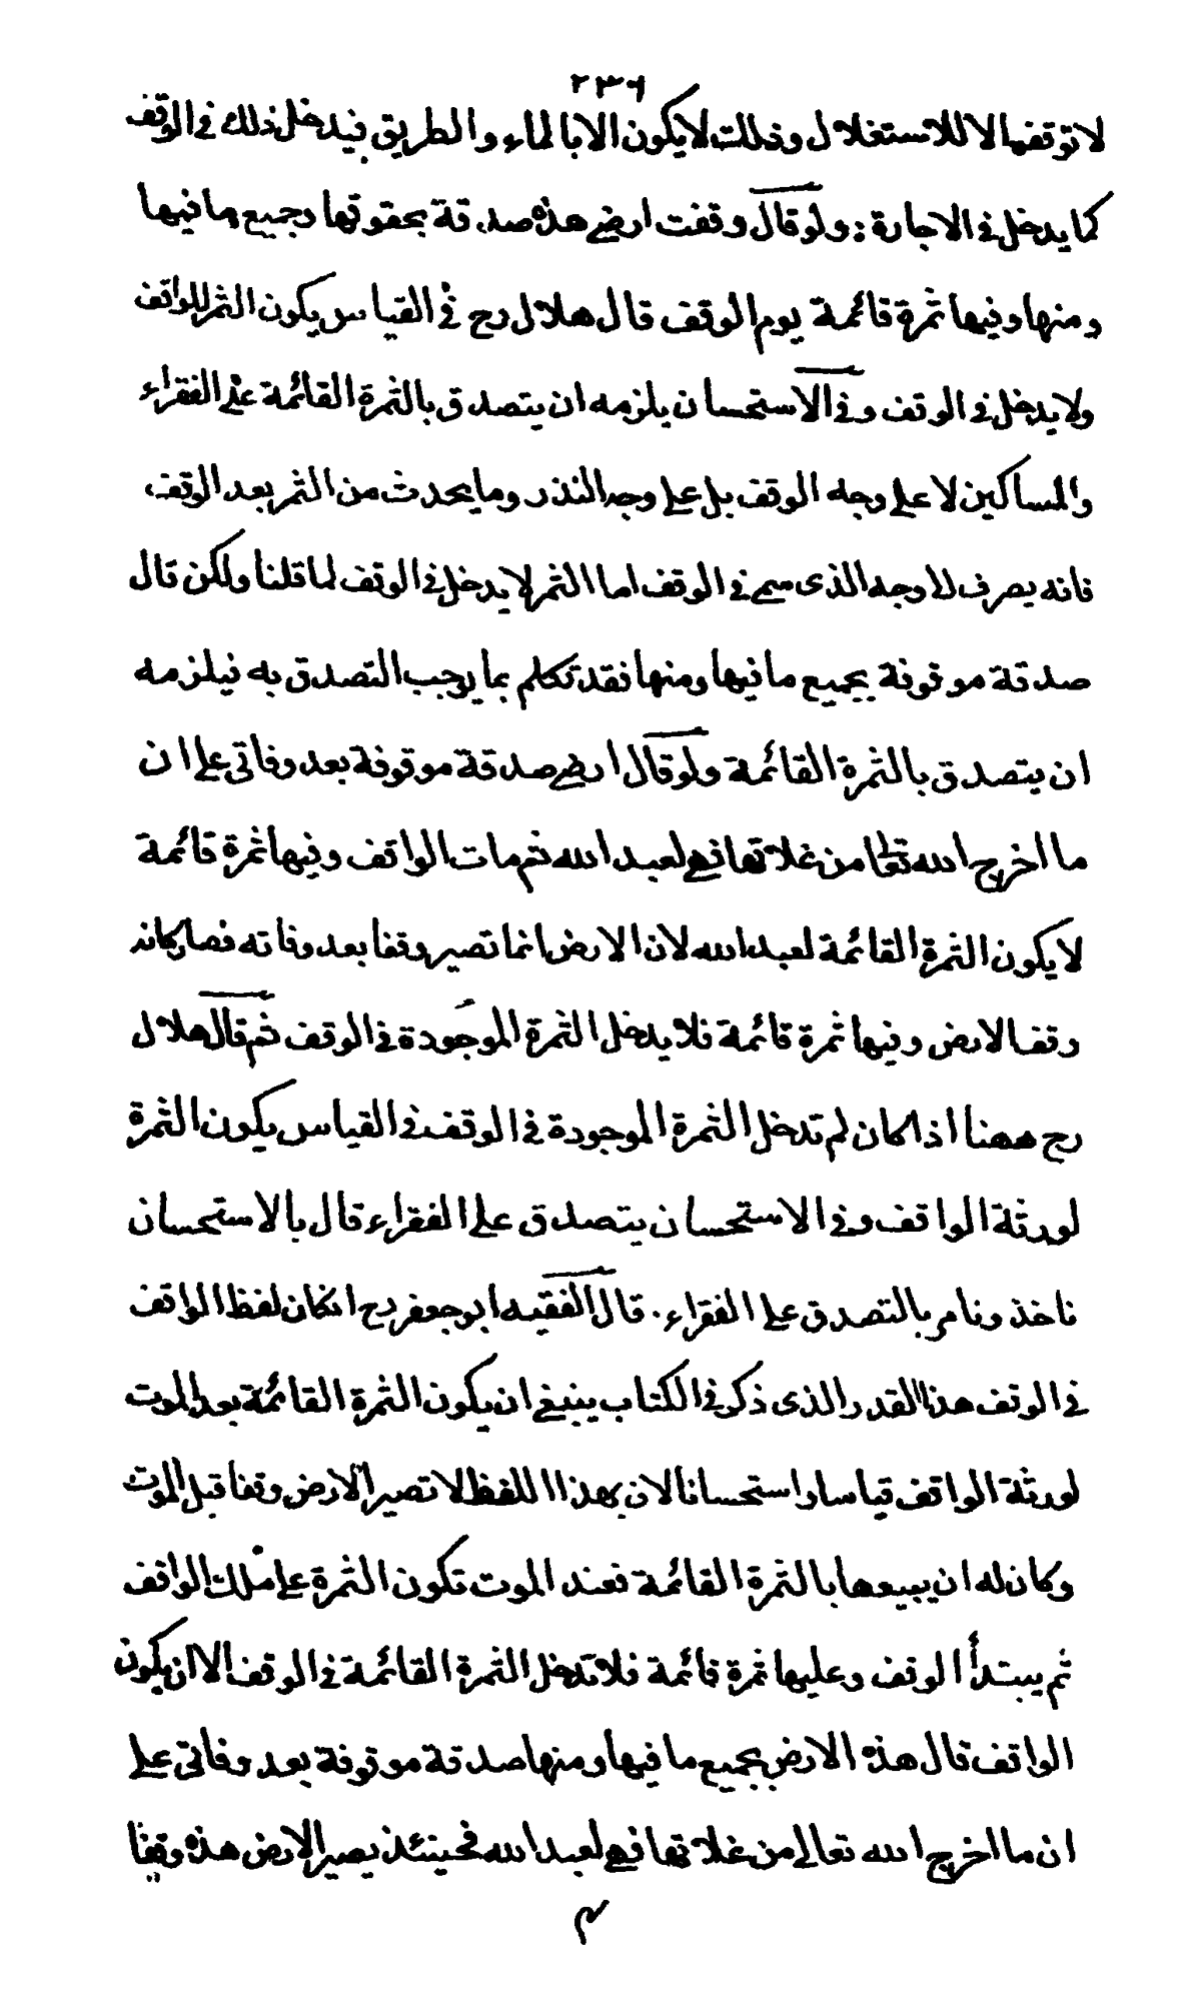 ٢٣٦
لاتوقفها الا للاستغلال وذلك لايكون الا بالماء والطريق فيدخل ذلك فى الوقف
كما يدخل فى الاجارة : ولو قال وقفت ارضى هذه صدقة بحقوقها وجميع ما فيها
ومنها وفيها ثمرة قائمة يوم الوقف قال هلال رح فى القياس يكون الثمر للواقف
ولا يدخل فى الوقف وفى الاستحسان يلزمه ان يتصدق بالثمرة القائمة على الفقراء
والمساكين لا على وجه الوقف بل على وجه النذر وما يحدث من الثمر بعد الوقف
فانه يصرف الى وجه الذى سمى فى الوقف اما الثمر لا يدخل فى الوقف لما قلنا ولكن قال
صدقة موقوفة بجميع ما فيها ومنها فقد تكلم بما يوجب التصدق به فيلزمه
ان يتصدق بالثمرة القائمة ولو قال ارضى صدقة موقوفة بعد وفاتى على ان
ما اخرج الله تعالى من غلاتها فهى لعبد الله ثم مات الواقف وفيها ثمرة قائمة
لا يكون الثمرة القائمة لعبد الله لان الارض انما تصير وقفا بعد وفاته فصار كانه
وقف الارض وفيها ثمرة قائمة فلا يدخل الثمرة الموجودة فى الوقف ثم قال هلال
رح ههنا اذا كان لم تدخل الثمرة الموجودة فى الوقف فى القياس يكون الثمرة
لورثة الواقف وفى الاستحسان يتصدق على الفقراء قال بالاستحسان
ناخذ ونامر بالتصدق على الفقراء . قال الفقيه ابو جعفر رح انكان لفظ الواقف
فى الوقف هذا القدر الذى ذكر فى الكتاب ينبغى ان يكون الثمرة القائمة بعد الموت
لورثة الواقف قياسا واستحسانا لان بهذا اللفظ لا تصير الارض وقفا قبل الموت
وكان له ان يبيعها بالثمرة القائمة فعند الموت تكون الثمرة على ملك الواقف
ثم يبتدأ الوقف وعليها ثمرة قائمة فلا تدخل الثمرة القائمة فى الوقف الا ان يكون
الواقف قال هذه الارض بجميع ما فيها ومنها صدقة موقوفة بعد وفاتى على
ان ما اخرج الله تعالى من غلاتها فهى لعبد الله فحينئذ يصير الارض هذه وقفا